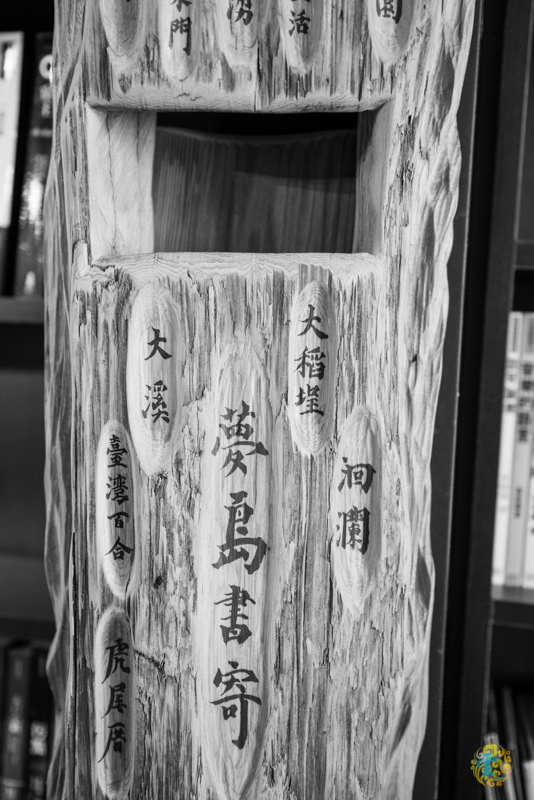 活
湧
門
洄瀾
大稻埕
夢島書寄
大溪
臺灣百合
虎尾厝